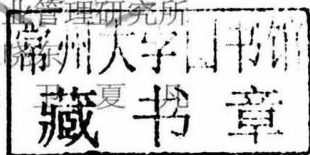 业管理研究所
晓东
常州大学图书馆
夏
藏书章